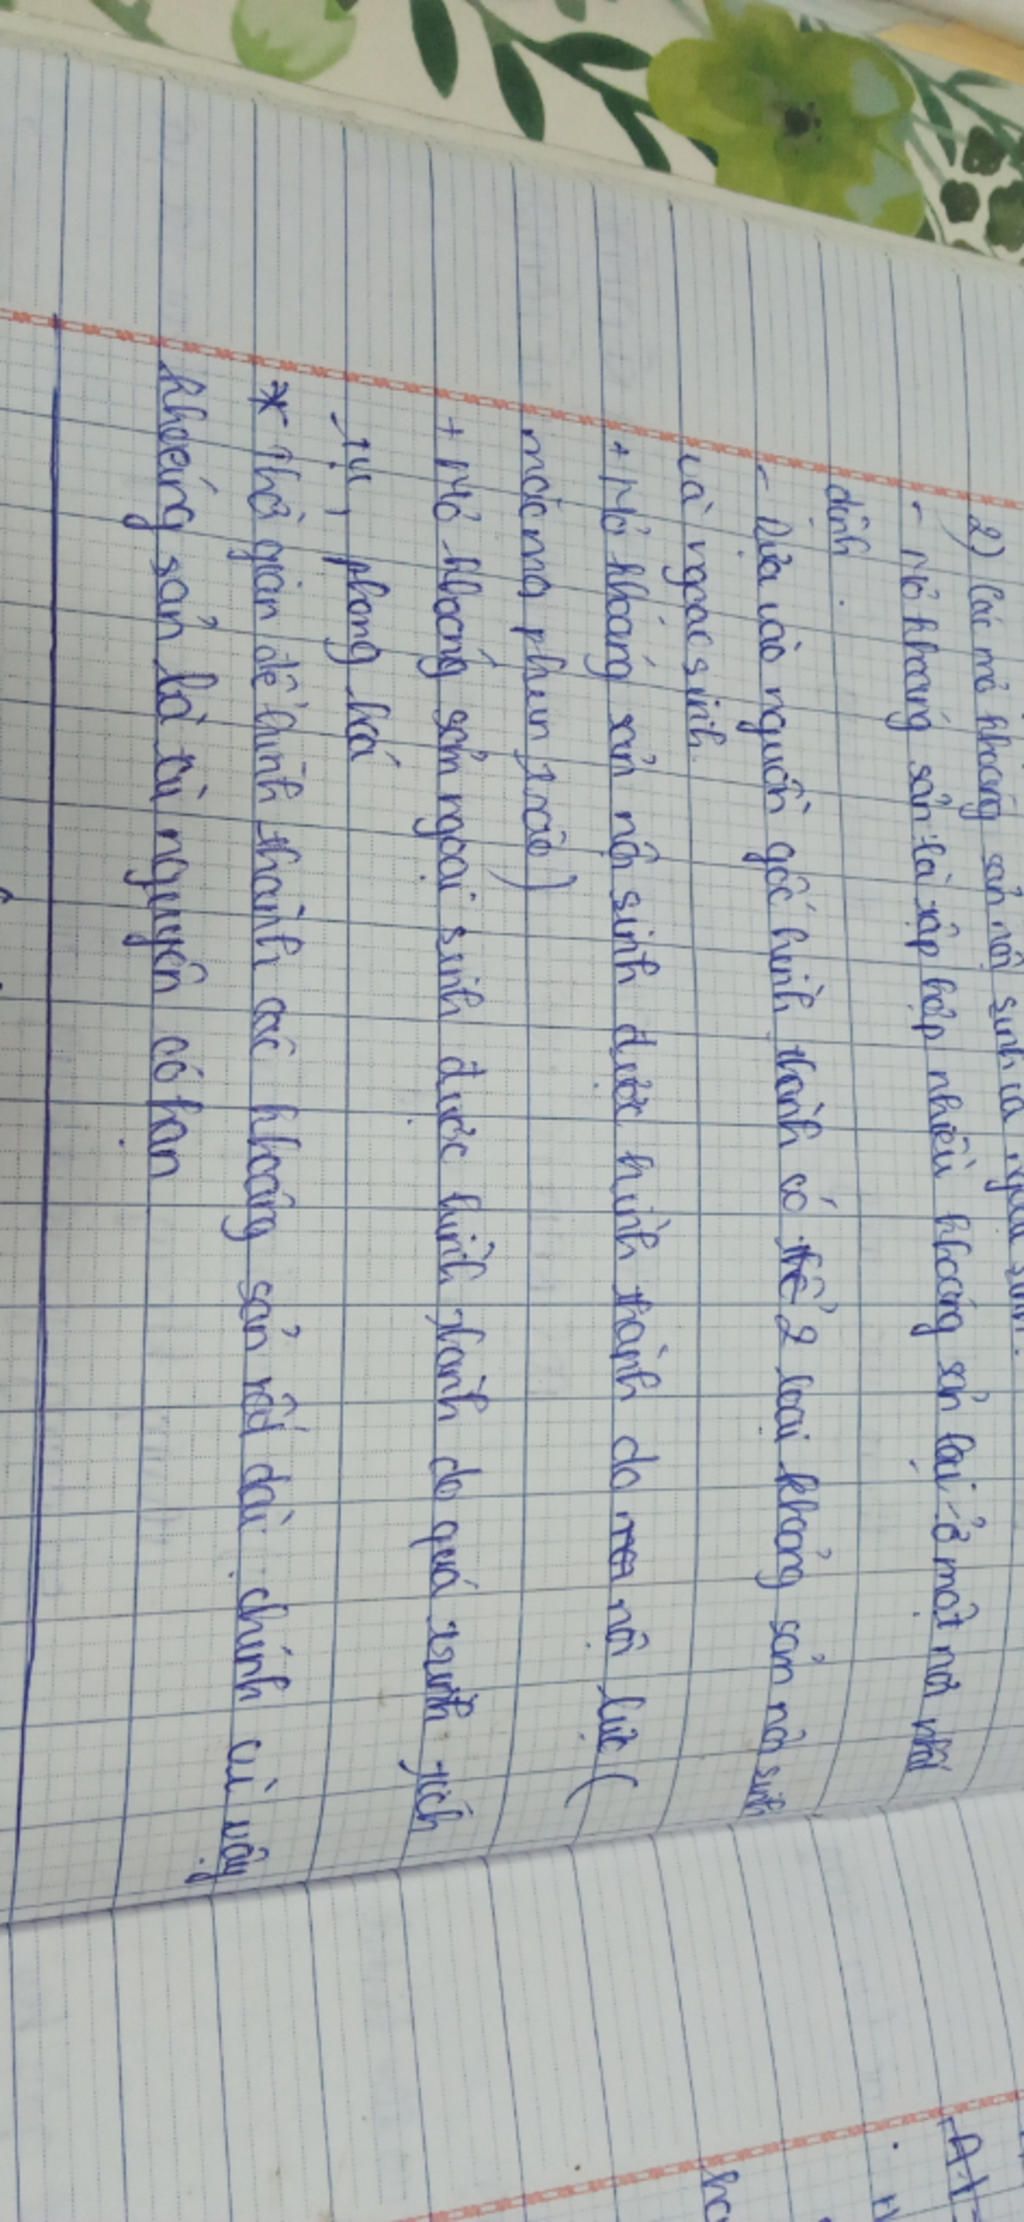 2) Các mỏ khoáng sản nội sinh và ngoại sinh.
- Mỏ khoáng sản: là tập hợp nhiều khoáng sản lại ở một nơi nhất
định.
- Dựa vào nguồn gốc hình thành có thể 2 loại khoảng sản nội sinh
và ngoại sinh.
+ Mỏ khoáng sản nội sinh được hình thành do nội lực (
mắc ma, phun trào)
+ Mỏ khoáng sản ngoại sinh được hình thành do quá trình tích
tụ, phong hoá
* Thời gian để hình thành các khoáng sản rất dài. chính vì vậy
khoáng sản là tài nguyên có hạn